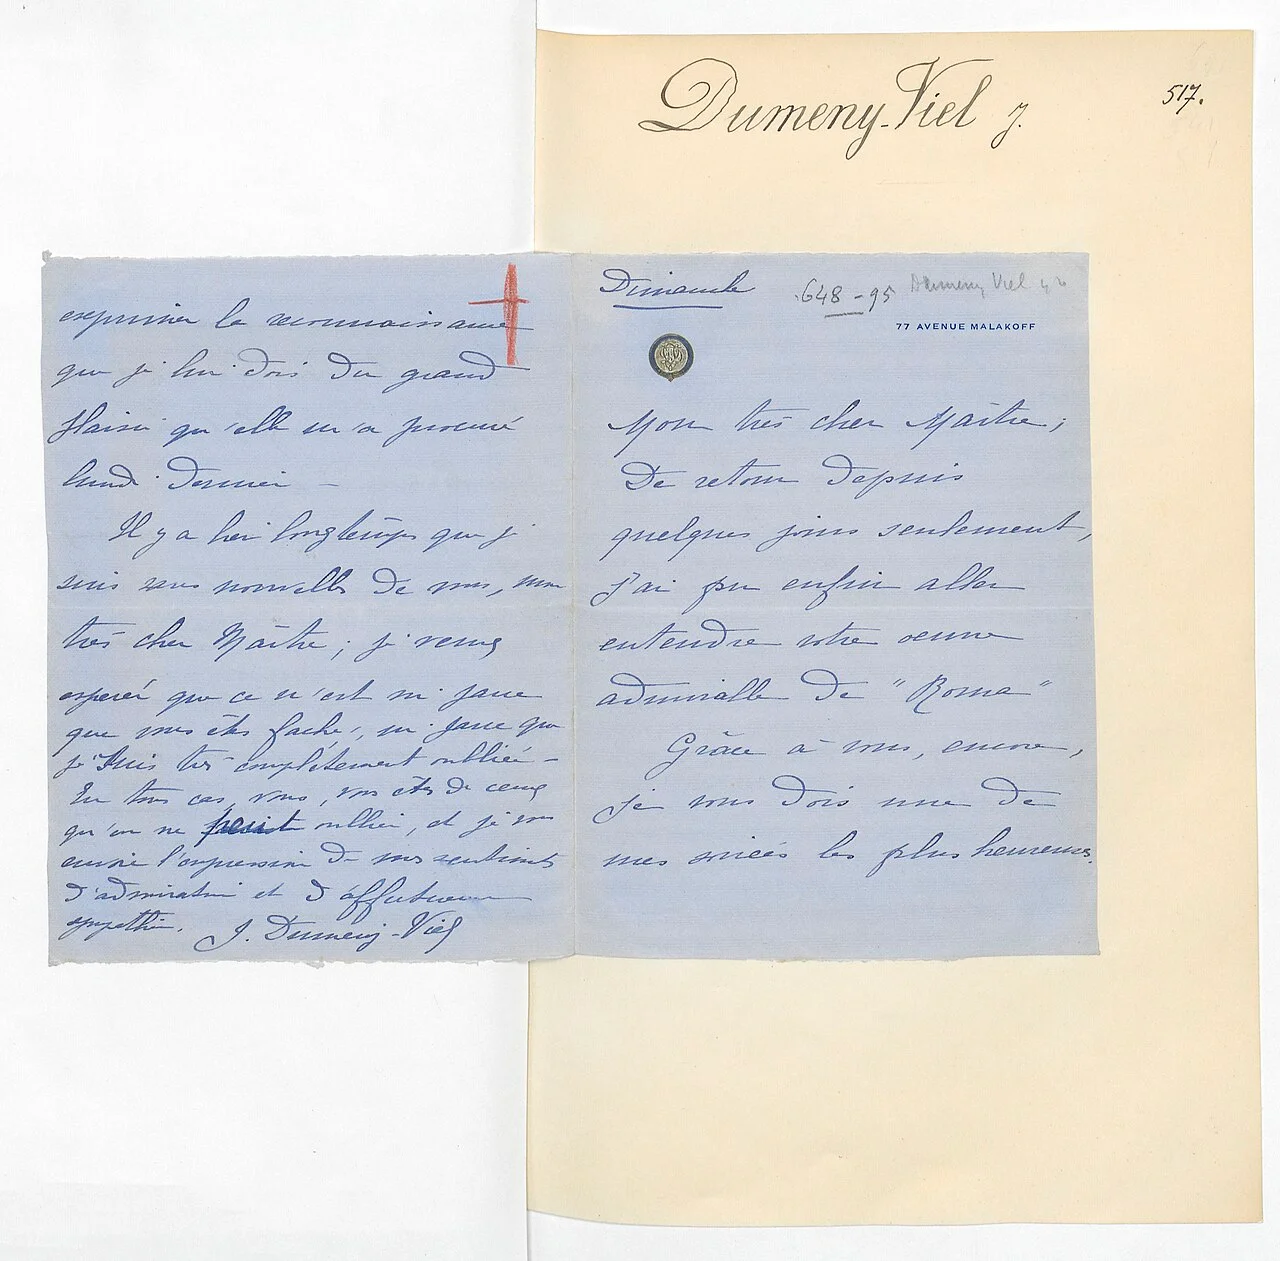 Dumeny-Viel J.
517.
Dimanche
648-95
Dumeny Viel
77 AVENUE MALAKOFF
Mon très cher Maître;
De retour depuis
quelques jours seulement,
j'ai pu enfin aller
entendre votre œuvre
admirable de "Roma"
Grâce à vous, encore,
je vous dois une de
mes soirées les plus heureuses.
exprimer la reconnaissance
que je lui dois du grand
plaisir qu'elle m'a procuré
lundi dernier –
Il y a bien longtemps que je
suis sans nouvelles de vous, mon
très cher Maître; je veux
espérer que ce n'est ni parce
que vous êtes faché, ni parce que
je suis très complètement oubliée –
En tous cas, vous, vous êtes de ceux
qu'on ne peut oublier, et je vous
envoie l'expression de mes sentiments
d'admiration et d'affectueuse
sympathie. J. Dumeny-Viel